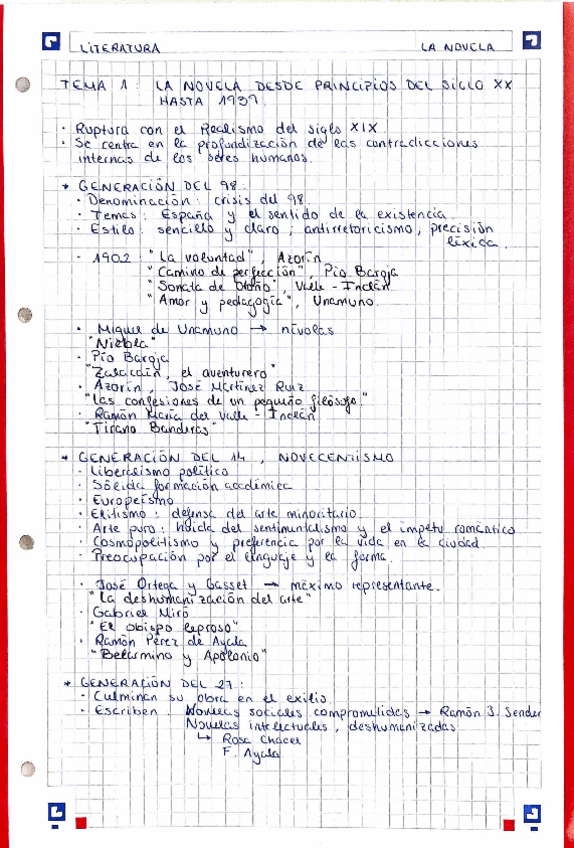 LITERATURA LA NOVELA
TEMA 1: LA NOVELA DESDE PRINCIPIOS DEL SIGLO XX
HASTA 1939.
· Ruptura con el Realismo del siglo XIX
· Se centra en la profundización de las contradicciones
internas de los seres humanos.
* GENERACIÓN DEL 98:
· Denominación: crisis del 98.
· Temas: España y el sentido de la existencia.
· Estilo: sencillo y claro, antirretoricismo, precisión
léxica.
· 1902 "La voluntad", Azorín
"Camino de perfección", Pío Baroja
"Sonata de Otoño", Valle-Inclán
"Amor y pedagogía", Unamuno.
· Miguel de Unamuno → nívolas
"Niebla"
· Pío Baroja
"Zalacaín, el aventurero"
· Azorín, José Martínez Ruiz
"Las confesiones de un pequeño filósofo."
· Ramón María del Valle-Inclán
"Tirano Banderas"
* GENERACIÓN DEL 14, NOVECENTISMO
· Liberalismo político
· Sólida formación académica
· Europeísmo
· Elitismo: defensa del arte minoritario.
· Arte puro: huida del sentimentalismo y el ímpetu romántico
· Cosmopolitismo y preferencia por la vida en la ciudad.
· Preocupación por el lenguaje y la forma.
· José Ortega y Gasset → máximo representante.
"La deshumanización del arte"
· Gabriel Miró
"El obispo leproso"
· Ramón Pérez de Ayala
"Belarmino y Apolonio"
* GENERACIÓN DEL 27:
· Culminan su obra en el exilio.
· Escriben: Novelas sociales comprometidas → Ramón J. Sender
Novelas intelectuales, deshumanizadas
↳ Rosa Chacel
F. Ayala